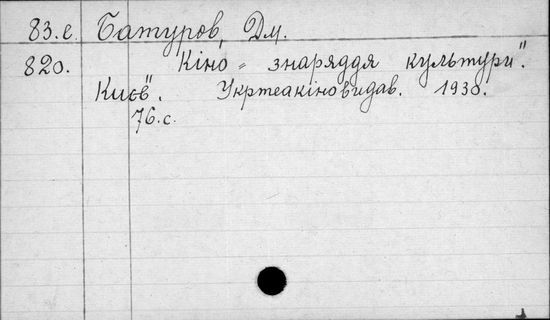 83.е. Батуров, Дм.
820. "Кіно = знаряддя культури".
Київ". Укртеакіновидав. 1930.
76.с.